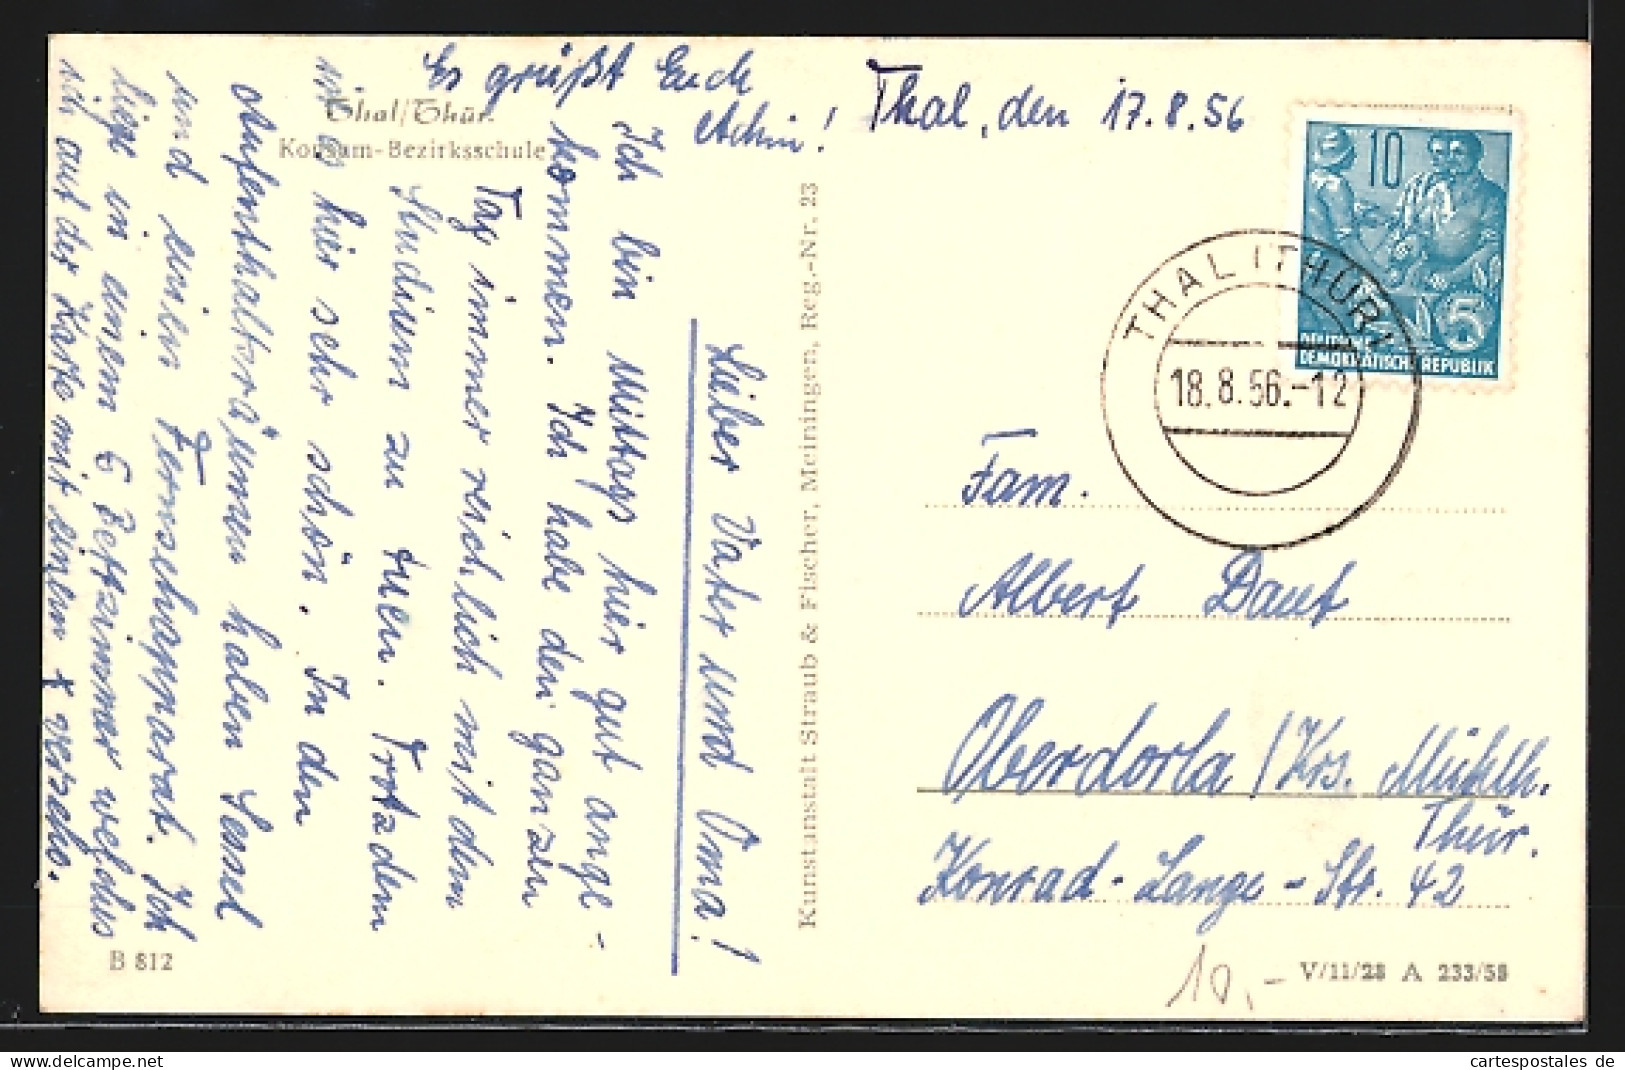 Thal, den 17.8.56
Lieber Vater und Oma!
Ich bin Mittags hier gut ange-
kommen. Ich habe den ganzen
Tag immer reichlich mit dem
Studium zu tuen. Trotzdem
ist es hier sehr schön. In den
Aufenthaltsräumen haben Sessel
und einen Fernschapparat. Ich
liege in einem 6 Bettzimmer welches
ich auf der Karte mit einem x versehe.
Es grüßt Euch
Achim!
Thal/Thür.
Konsum-Bezirksschule
B 812
Kunstanstalt Straub & Fischer, Meiningen, Reg.-Nr. 23
10
5
DEUTSCHE
DEMOKRATISCHE REPUBLIK
THAL (THÜR)
18.8.56.-12
Fam.
Albert Daut
Oberdorla / Krs. Mühlh.
Thür.
Konrad-Lange-Str. 42
10,-
V/11/28 A 233/58
cartespostales de